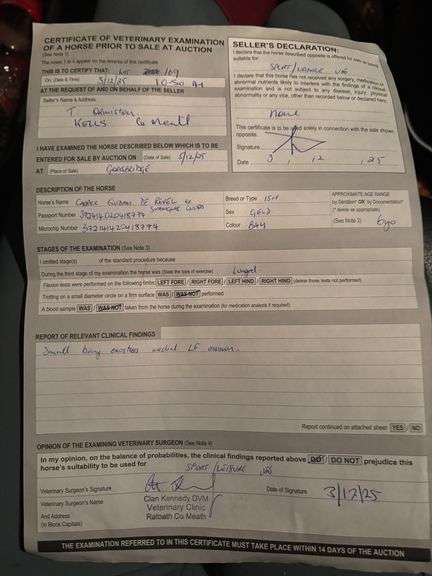 CERTIFICATE OF VETERINARY EXAMINATION
OF A HORSE PRIOR TO SALE AT AUCTION
(See Note 1)
THIS IS TO CERTIFY THAT: LOT 169
On: (Date & Time) 3/12/25 10:50 AM
AT THE REQUEST OF AND ON BEHALF OF THE SELLER
Seller's Name & Address:
T Ormiston
Kells Co Meath
I HAVE EXAMINED THE HORSE DESCRIBED BELOW WHICH IS TO BE
ENTERED FOR SALE BY AUCTION ON (Date of Sale) 5/12/25
AT (Place of Sale) GORESBRIDGE
SELLER'S DECLARATION:
I declare that the horse described opposite is offered for sale as being
suitable for:
SPORT/LEISURE USE
I declare that this horse has not received any surgery, medication or
abnormal nutrients likely to interfere with the findings of a clinical
examination and is not subject to any disease, injury, physical
abnormality or any vice, other than recorded below or declared here:
None
This certificate is to be used solely in connection with the sale shown
opposite.
Signature
Date 3 12 25
DESCRIPTION OF THE HORSE
Horse's Name
Passport Number
Microchip Number
Breed or Type ISH
Sex GELD
Colour BAY
APPROXIMATE AGE RANGE
by Dentition* OR by Documentation*
(* delete as appropriate)
(See Note 2) 6yo
STAGES OF THE EXAMINATION (See Note 3)
I omitted stage(s) of the standard procedure because
During the third stage of my examination the horse was (State the type of exercise) Lunged
Flexion tests were performed on the following limbs: LEFT FORE / RIGHT FORE / LEFT HIND / RIGHT HIND (delete those tests not performed)
Trotting on a small diameter circle on a firm surface WAS / WAS NOT performed
A blood sample WAS / WAS NOT taken from the horse during the examination (for medication analysis if required)
REPORT OF RELEVANT CLINICAL FINDINGS
Small bony exostosis medial LF cannon.
Report continued on attached sheet YES / NO
OPINION OF THE EXAMINING VETERINARY SURGEON (See Note 4)
In my opinion, on the balance of probabilities, the clinical findings reported above DO / DO NOT prejudice this
horse's suitability to be used for SPORT/LEISURE USE
Veterinary Surgeon's Signature
Date of Signature 3/12/25
Veterinary Surgeon's Name
And Address
(in Block Capitals)
Cian Kennedy DVM
Veterinary Clinic
Ratoath Co Meath
THE EXAMINATION REFERRED TO IN THIS CERTIFICATE MUST TAKE PLACE WITHIN 14 DAYS OF THE AUCTION